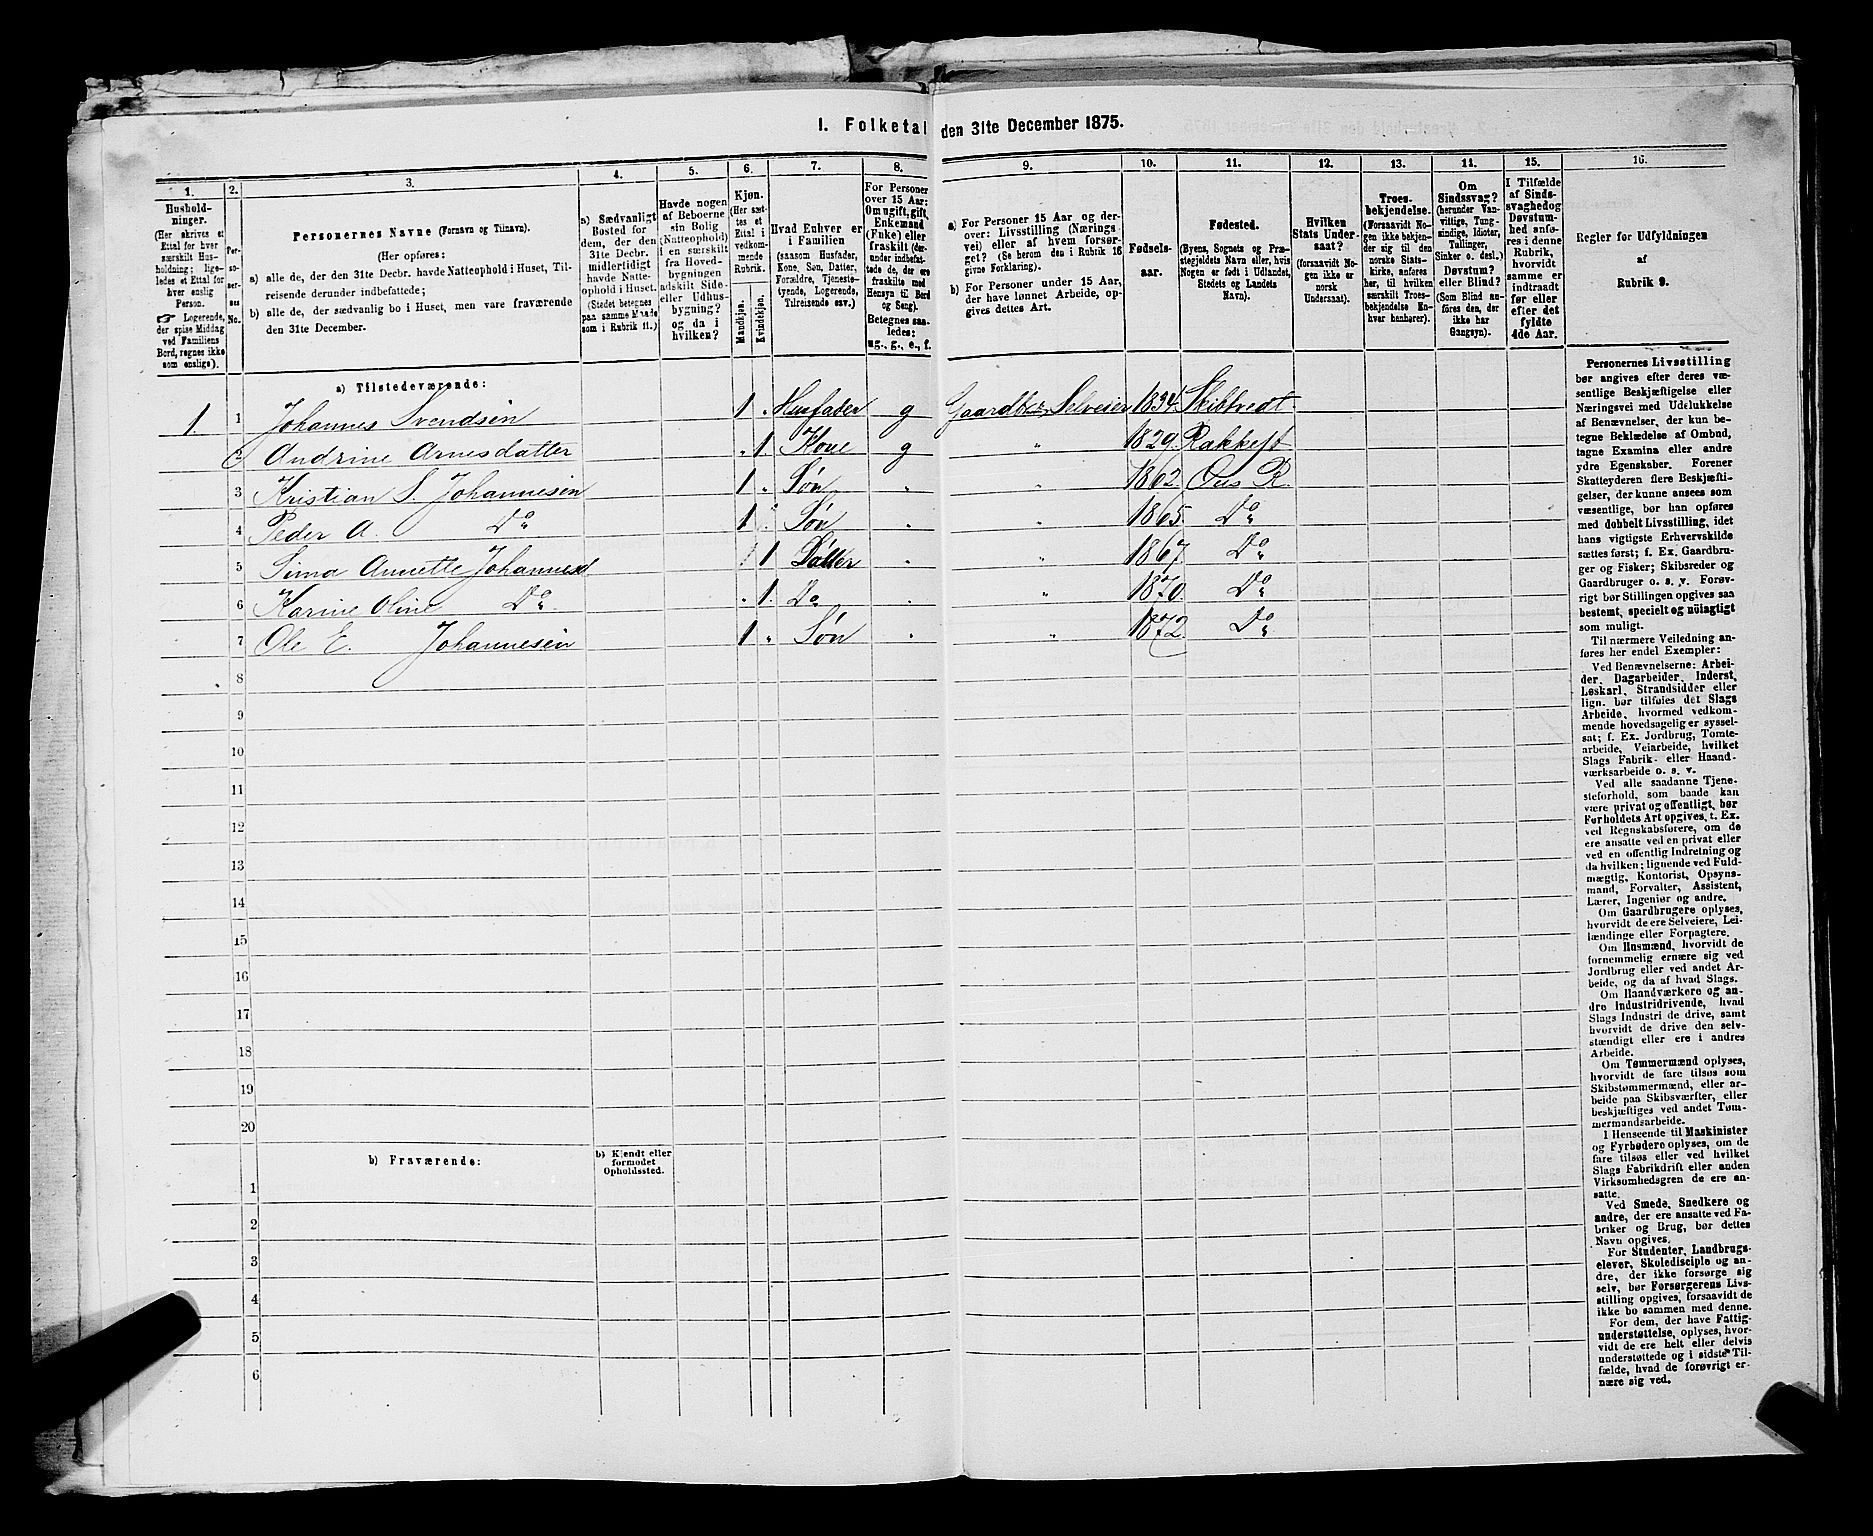 1. Folketal den 31te December 1875.
1. 2. 3. 4. 5. 6. 7. 8. 9. 10. 11. 12. 13. 14. 15. 16.
Hushold-
ninger.
(Her skrives et
Ettal for hver
særskilt Hus-
holdning; lige-
ledes et Ettal for
hver enslig
Person.
☞ Logerende,
der spise Middag
ved Familiens
Bord, regnes ikke
som enslige).
Per-
so-
ner-
nes
No.
Personernes Navne (Fornavn og Tilnavn).
(Her opføres:
a) alle de, der den 31te Decbr. havde Natteophold i Huset, Til-
reisende derunder indbefattede;
b) alle de, der sædvanlig bo i Huset, men vare fraværende
den 31te December.
a) Sædvanligt
Bosted for
dem, der den
31te Decbr.
midlertidigt
havde Natte-
ophold i Huset.
(Stedet betegnes
paa samme Maade
som i Rubrik 11.)
Havde nogen
af Beboerne
sin Bolig
(Natteophold)
i en særskilt
fra Hoved-
bygningen
adskilt Side-
eller Udhus-
bygning?
og da i
hvilken?
Kjøn.
(Her sæt-
tes et
Ettal i
vedkom-
mende
Rubrik.
Mandkjøn.
Kvindekjøn.
Hvad Enhver er
i Familien
(saasom Husfader,
Kone, Søn, Datter,
Forældre, Tjeneste-
tyende, Logerende,
Tilreisende osv.)
For Personer
over 15 Aar:
Om ugift, gift,
Enkemand
(Enke) eller
fraskilt (der-
under indbefat-
tede de, der ere
fraskilte med
Hensyn til Bord
og Seng).
Betegnes saa-
ledes:
ug., g., e., f.
a) For Personer 15 Aar og der-
over: Livsstilling (Nærings
vei) eller af hvem forsør-
get? (Se herom den i Rubrik 16
givne Forklaring).
b) For Personer under 15 Aar,
der have lønnet Arbeide, op-
gives dettes Art.
Fødsels-
aar.
Fødested.
(Byens, Sognets og Præ-
stegjeldets Navn eller, hvis
Nogen er født i Udlandet,
Stedets og Landets
Navn).
Hvilken
Stats Under-
saat?
(forsaavidt No-
gen ikke er
norsk
Undersaat).
Troes-
bekjendelse.
(Forsaavidt No-
gen ikke bekjen-
der sig til den
norske Stats-
kirke, anføres
her, til hvilken
særskilt Troes-
bekjendelse En-
hver henhører).
Om
Sindssvag?
(herunder Van-
vittige, Tung-
sindige, Idioter,
Tullinger,
Sinker o. desl.)
Døvstum?
eller Blind?
(Som Blind an-
føres den, der
ikke har
Gangsyn).
I Tilfælde
af Sinds-
svaghed og
Døvstum-
hed anfø-
res i denne
Rubrik,
hvorvidt
samme er
indtraadt
før eller
efter det
fyldte
4de Aar.
Regler for Udfyldningen
af
Rubrik 9.
a) Tilstedeværende:
1. 1 Johannes Svendsen 1 „ Husfader g Gaardbr. Selveier 1834. Skibtvedt
2 Andrine Arnesdatter „ 1 Kone g „ 1829. Rakkest
3 Kristian S. Johannesen 1 „ Søn „ „ 1862. Ous R.
4 Peder A. Do 1 „ Søn „ „ 1865. Do
5 Sima Annette Johannesd 1 Datter „ „ 1867. Do
6 Karine Oline Do „ 1. Do „ „ 1870. Do
7 Ole E. Johannesen 1 „ Søn „ „ 1872. Do
8
9
10
11
12
13
14
15
16
17
18
19
20
b) Fraværende:
b) Kjendt eller
formodet
Opholdssted.
1
2
3
4
5
6
Personernes Livsstilling
bør angives efter deres væ-
sentlige Beskjæftigelse eller
Næringsvei med Udelukkelse
af Benævnelser, der kun be-
tegne Beklædelse af Ombud,
tagne Examina eller andre
ydre Egenskaber. Forener
Skatteyderen flere Beskjæfti-
gelser, der kunne ansees som
væsentlige, bør han opføres
med dobbelt Livsstilling, idet
hans vigtigste Erhvervskilde
sættes først; f. Ex. Gaardbru-
ger og Fisker; Skibsreder og
Gaardbruger o. s. v. Forøv-
rigt bør Stillingen opgives saa
bestemt, specielt og nöiagtigt
som muligt.
Til nærmere Veiledning an-
føres her endel Exempler:
Ved Benævnelserne: Arbei-
der, Dagarbeider, Inderst,
Løskarl, Strandsidder eller
lign. bør tilføies det Slags
Arbeide, hvormed vedkom-
mende hovedsagelig er syssel-
sat; f. Ex. Jordbrug, Tomte-
arbeide, Veiarbeide, hvilket
Slags Fabrik- eller Haand-
værksarbeide o. s. v.
Ved alle saadanne Tjene-
steforhold, som baade kan
være privat og offentligt, bør
Forholdets Art opgives, t. Ex.
ved Regnskabsførere, om de
ere ansatte ved en privat eller
ved en offentlig Indretning og
da hvilken; lignende ved Fuld-
mægtig, Kontorist, Opsyns-
mand, Forvalter, Assistent,
Lærer, Ingeniør og andre.
Om Gaardbrugere oplyses,
hvorvidt de ere Selveiere, Lei-
lændinge eller Forpagtere.
Om Husmænd, hvorvidt de
fornemmelig ernære sig ved
Jordbrug eller ved andet Ar-
beide, og da af hvad Slags.
Om Haandværkere og an-
dre Industridrivende, hvad
Slags Industri de drive, samt
hvorvidt de drive den selv-
stændigt eller ere i andres
Arbeide.
Om Tømmermænd oplyses,
hvorvidt de fare tilsøs som
Skibstømmermænd, eller ar-
beide paa Skibsværfter, eller
beskjæftiges ved andet Tøm-
mermandsarbeide.
I Henseende til Maskinister
og Fyrbødere oplyses, om de
fare tilsøs eller ved hvilket
Slags Fabrikdrift eller anden
Virksomhedsgren de ere an-
satte.
Ved Smede, Snedkere og
andre, der ere ansatte ved Fa-
briker og Brug, bør dettes
Navn opgives.
For Studenter, Landbrugs-
elever, Skoledisciple og an-
dre, der ikke forsørge sig
selv, bør Forsørgerens Livs-
stilling opgives, forsaavidt de
ikke bo sammen med denne.
For dem, der have Fattig-
understøttelse, oplyses, hvor-
vidt de ere helt eller delvis
understøttede og i sidste Til-
fælde, hvad de forøvrigt er-
nære sig ved.